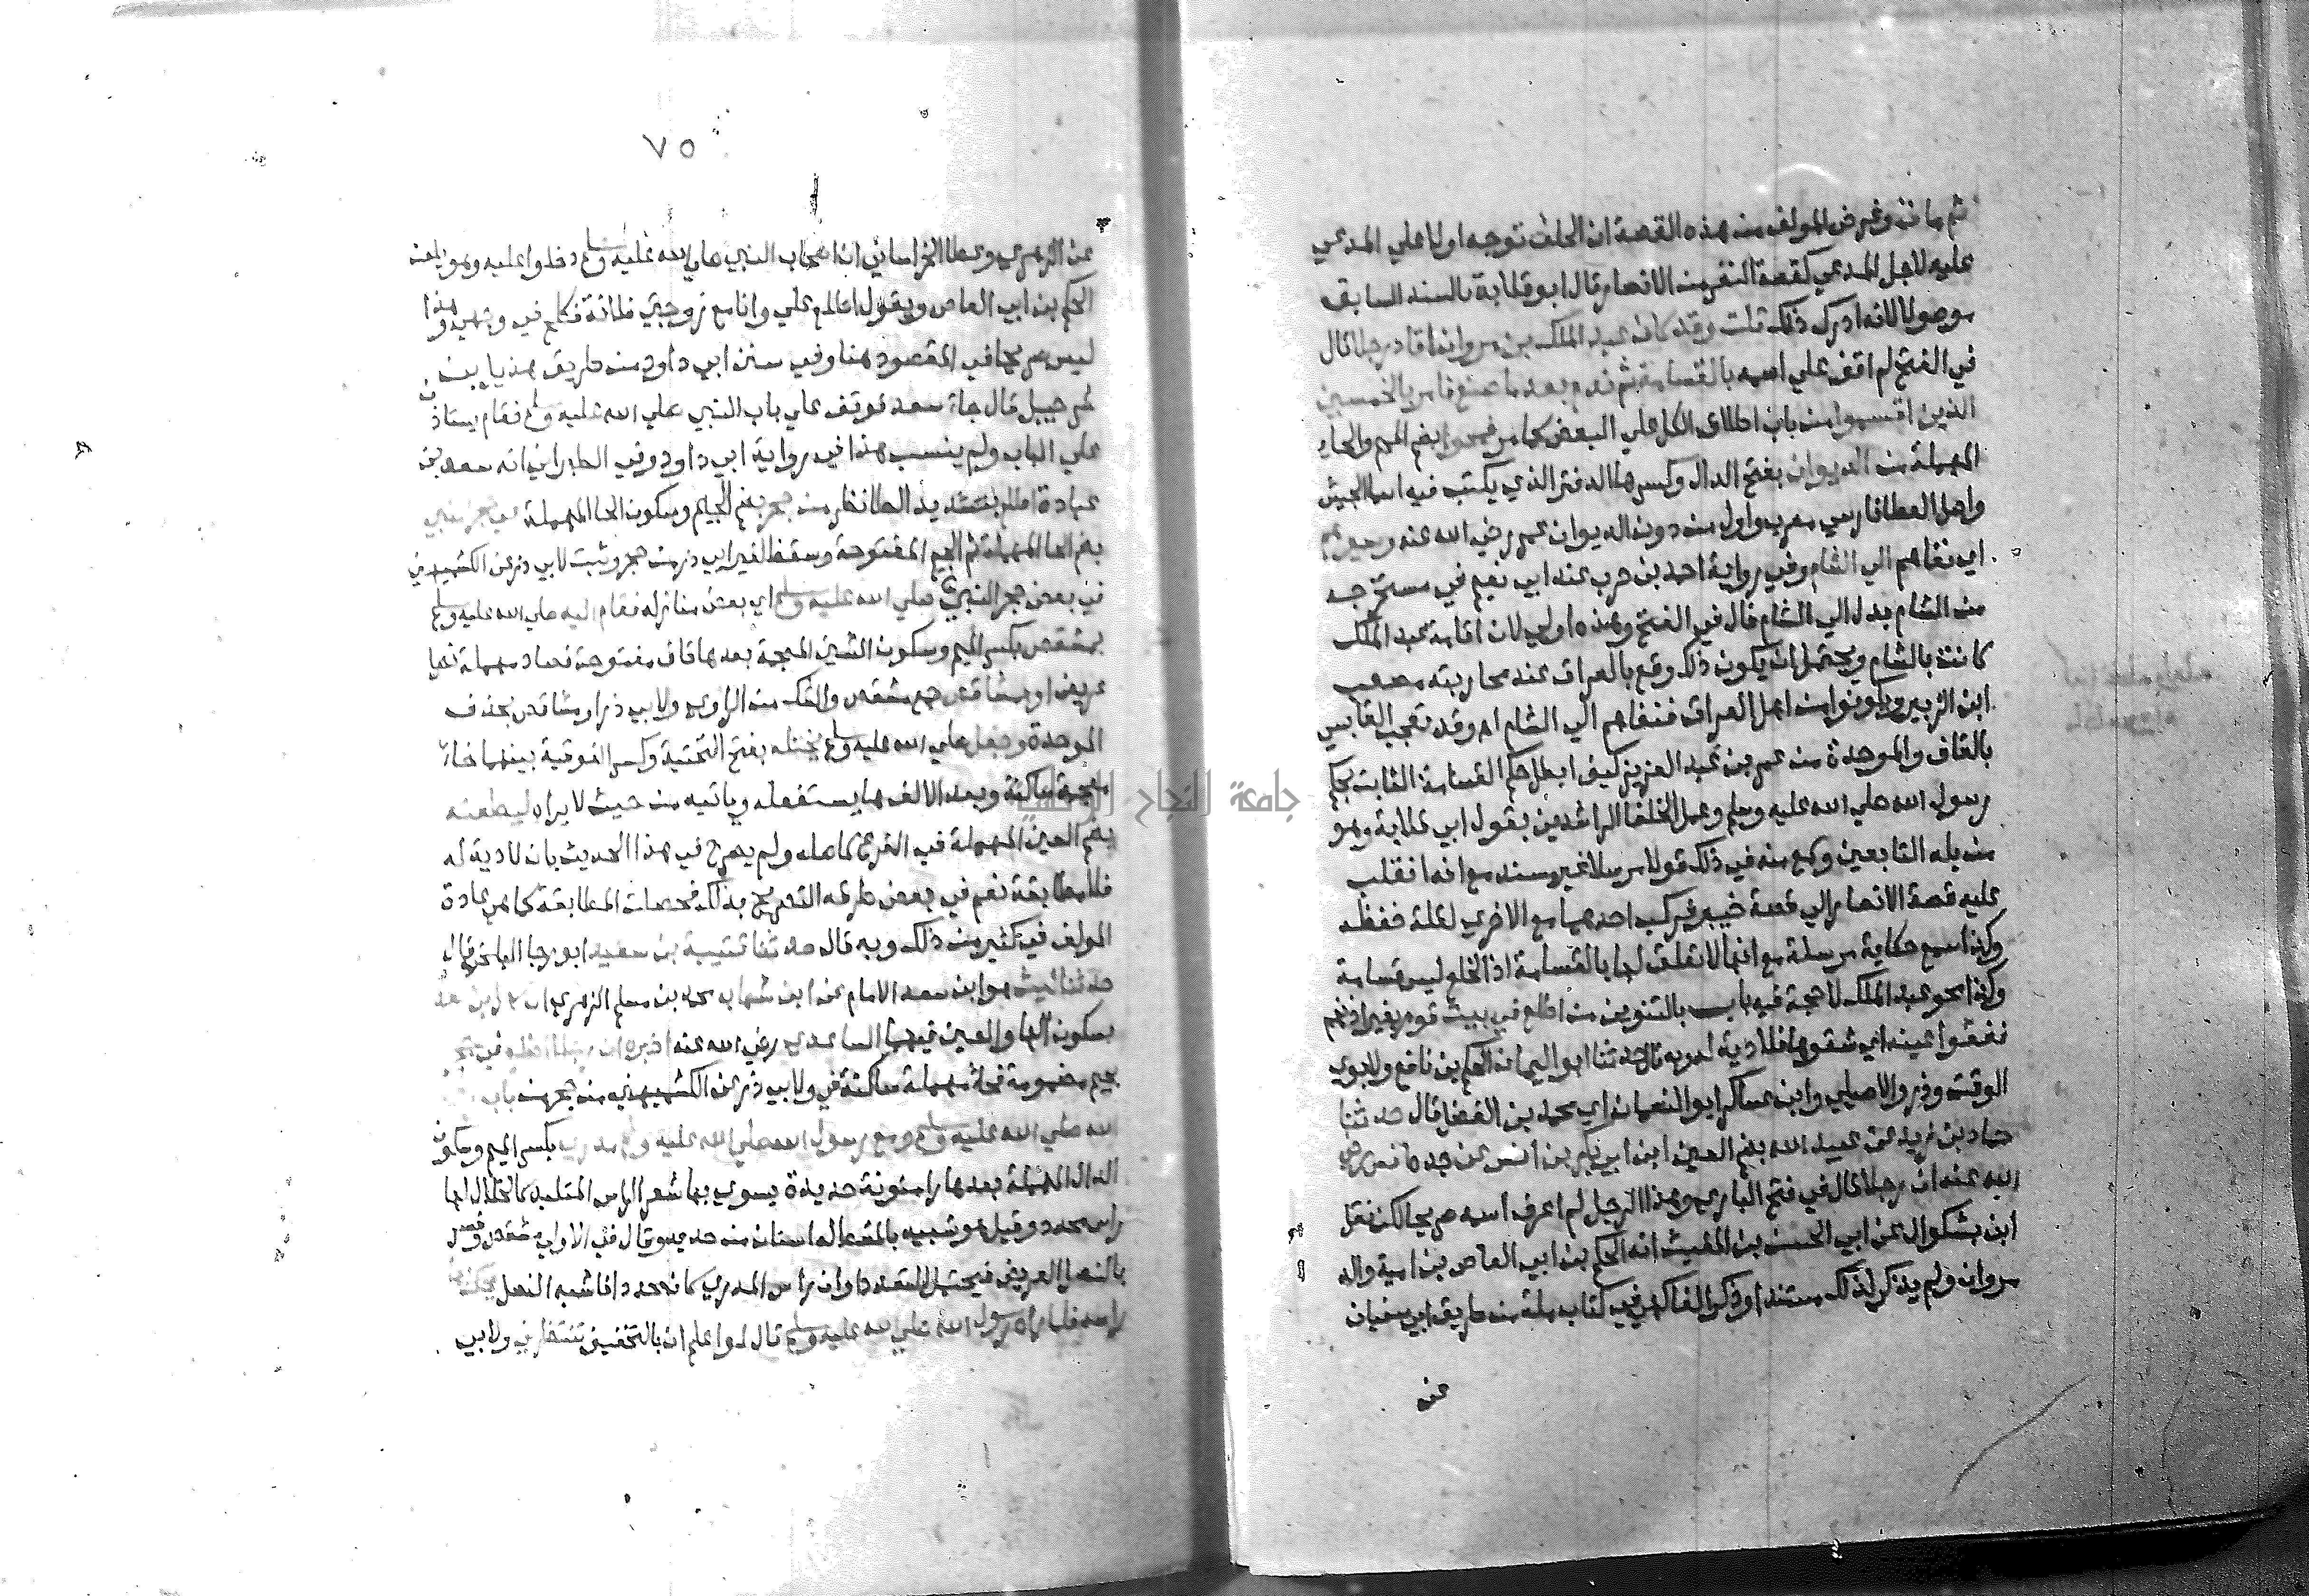 ثم مات وغرض المولف من هذه القصة ان الحلف توجه اولا علي المدعي
عليه لا علي المدعي كقصة النفر من الانصار قال ابو قلابة بالسند السابق
موصولا لانه ادرك ذلك قلت وقد كان عبد الملك بن مروان اقاد رجلا قال
في الفتح لم اقف علي اسمه بالقسامة ثم ندم بعد ما صنع فامر بالخمسين
الذين اقسموا من باب اطلاق الكل علي البعض كما مر فمحوا بضم الميم والحاء
المهملة من الديوان بفتح الدال وكسرها الدفتر الذي يكتب فيه اسما الجيش
واهل العطا فارسي معرب واول من دون الديوان عمر رضي الله عنه وسيرهم
اي نفاهم الي الشام وفي رواية احمد بن حرب عند ابي نعيم في مستخرجه
من الشام بدل الي الشام قال في الفتح وهذه اولي لان اقامة عبد الملك
كانت بالشام ويحتمل ان يكون ذلك وقع بالعراق عند محاربته مصعب
ابن الزبير ويكونوا من اهل العراق فنفاهم الي الشام اه وقد تعجب القابسي
بالقاف والموحدة من عمر بن عبد العزيز كيف ابطل حكم القسامة الثابت بحكم
رسول الله صلي الله عليه وسلم وعمل الخلفا الراشدين بقول ابي قلابة وهو
من بله التابعين وسمع منه في ذلك قولا مرسلا غير مسند مع انه انقلب
عليه قصة الانصار الي قصة خيبر فركب احدهما مع الاخري لقلة حفظه
وكذا سمع حكاية مرسلة مع انها لا تعلق لها بالقسامة اذ الخلع ليس قسامة
وكذا محو عبد الملك لا حجة فيه باب بالتنوين من اطلع في بيت قوم بغير اذنهم
ففقوا عينه اي شقوها فلا دية له وبه قال حدثنا ابو اليمان الحكم بن نافع ولابوي
الوقت وذر والاصيلي وابن عساكر ابو النعمان اي محمد بن الفضل قال حدثنا
حماد بن زيد عن عبيد الله بضم العين ابن ابي بكر بن انس عن جده انس رضي
الله عنه ان رجلا قال في فتح الباري وهذا الرجل لم اعرف اسمه صريحا لكن نقل
ابن بشكوال عن ابي الحسن بن المغيث انه الحكم بن ابي العاص بن امية والد
مروان ولم يذكر لذلك مستندا وذكر الفاكهي في كتاب مكة من طريق ابي سفيان
عن
٧٥
عن الزهري وعطا الخراساني ان اصحاب النبي صلي الله عليه وسلم دخلوا عليه وهو يلعن
الحكم بن ابي العاص ويقول اطلع علي وانا مع زوجتي فلانة فكلح في وجهي وهذا
ليس صريحا في المقصود هنا وفي سنن ابي داود من طريق هذيل بن
شرحبيل قال جاء سعد فوقف علي باب النبي صلي الله عليه وسلم فقام يستاذن
علي الباب ولم ينسب هذا في رواية ابي داود وفي الطبراني انه سعد بن
عبادة اطلع بتشديد الطا نظر من جحر بضم الجيم وسكون الحا المهملة في حجر النبي
بضم الحا المهملة ثم الجيم المفتوحة وسقط لغير ابي ذر من جحر وثبت لابي ذر عن الكشميهني
في بعض حجر النبي صلي الله عليه وسلم اي بعض منازله فقام اليه صلي الله عليه وسلم
بمشقص بكسر الميم وسكون الشين المعجمة بعدها قاف مفتوحة فصاد مهملة نصل
عريض او بمشاقص جمع مشقص والشك من الراوي ولابي ذر او مشاقص بحذف
الموحدة وجعل صلي الله عليه وسلم يختله بفتح التحتية وكسر الفوقية بينهما خاء
معجمة ساكنة وبعد الا لف ها يستغفله وياتيه من حيث لا يراه ليطعنه
بضم العين المهملة في الفرع كاصله ولم يصرح في هذا الحديث بان لا دية له
فلا مطابقة نعم في بعض طرقه التصريح بذلك فحصلت المطابقة كما هي عادة
المولف في كثير من ذلك وبه قال حدثنا قتيبة بن سعيد ابو رجا البلخي قال
حدثنا ليث هو ابن سعد الامام عن ابن شهاب محمد بن مسلم الزهري ان سهل بن سعد
بسكون الها والعين فيهما الساعدي رضي الله عنه اخبره ان رجلا اطلع في جحر
بجيم مضمومة فحاء مهملة ساكنة في ولابي ذر عن الكشميهني من جحر من باب
الله صلي الله عليه وسلم ومع رسول الله صلي الله عليه وسلم مدري بكسر الميم وسكون
الدال المهملة بعدها را منونة حديدة يسوي بها شعر الراس المتلبد كالخلال لها
راس محدد وقيل هو شبيه بالمشط له اسنان من حديد وقال في الاولي مشقص وفسر
بالنصل العريض فيحتمل التعدد او ان راس المدري كان محددا فاشبه النصل
راسه فلما راه رسول الله صلي الله عليه وسلم قال لو اعلم ان بالتخفيف تنتظرني ولابي
جامعة النجاح الوطنية